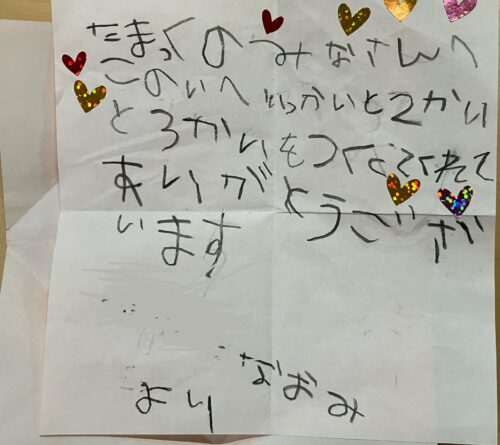 たまっくのみなさんへ
このいへ いっかいと2かい
と3かいをつくてくれて
ありがとうござ
います
なおみ
より